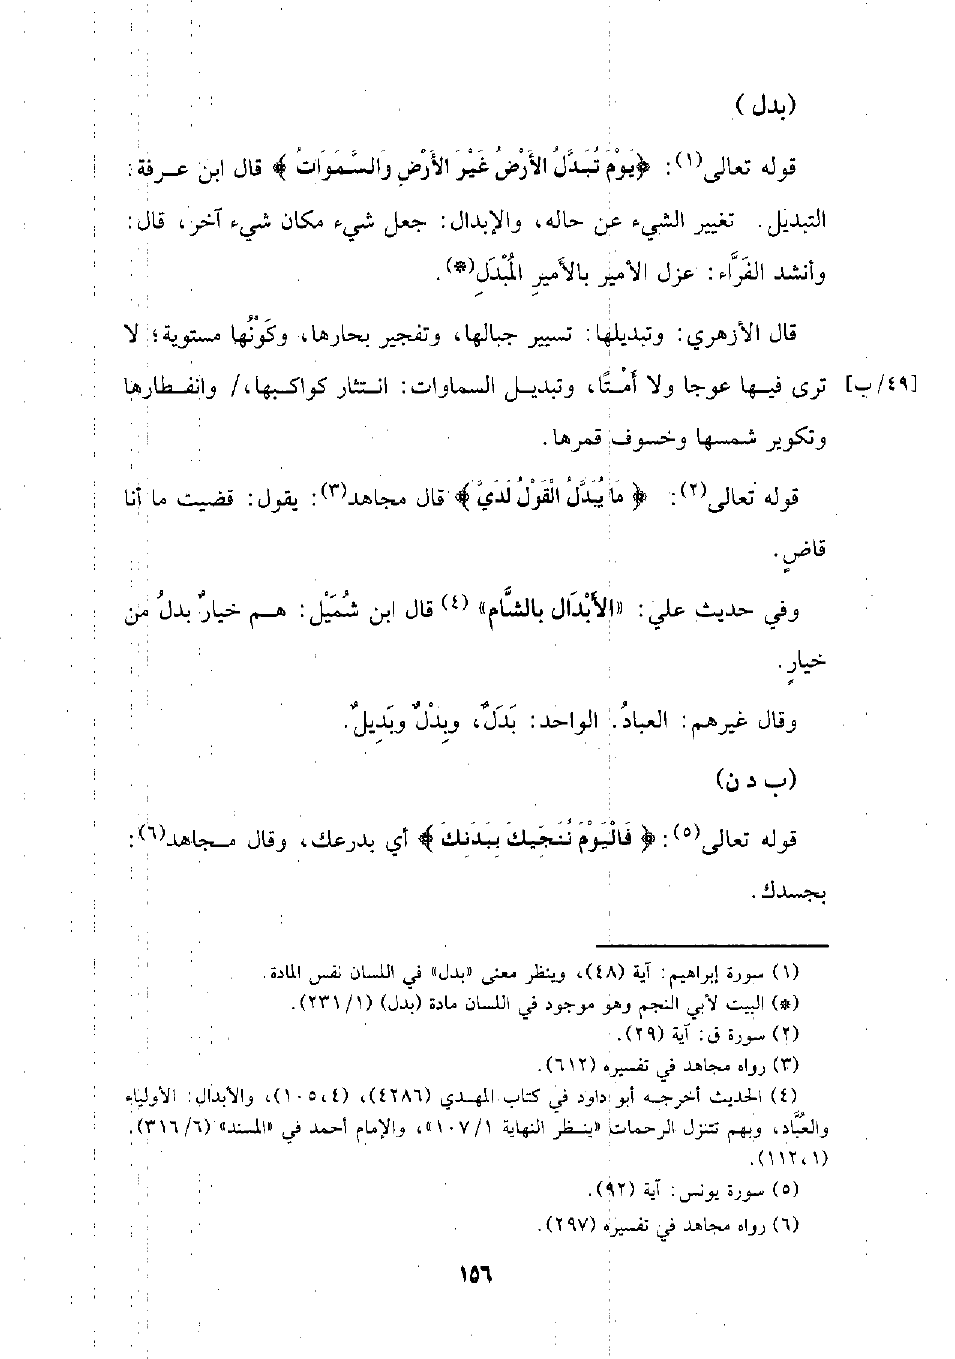 (بدل)
قوله تعالى(١): ﴿يَوْمَ تُبَدَّلُ الأَرْضُ غَيْرَ الأَرْضِ والسَّمَوَاتُ﴾ قال ابن عـرفة:
التبديل. تغيير الشيء عن حاله، والإبدال: جعل شيء مكان شيء آخر، قال:
وأنشد الفَرَّاء: عزل الأميرِ بالأميرِ المُبْدَلِ(*).
قال الأزهري: وتبديلها: تسيير جبالها، وتفجير بحارها، وكَوْنُها مستوية؛ لا
[٤٩/ب] ترى فيـها عوجا ولا أمْـتًا، وتبديـل السماوات: انـتثار كواكـبها،/ وانفـطارها
وتكوير شمسها وخسوف قمرها.
قوله تعالى(٢): ﴿مَا يُبَدَّلُ الْقَوْلُ لَدَيَّ﴾ قال مجاهد(٣): يقول: قضيت ما أنا
قاضٍ.
وفي حديث علي: «الأَبْدَال بالشَّام» (٤) قال ابن شُمَيْل: هـم خيارٌ بدلُ من
خيارٍ.
وقال غيرهم: العبادُ. الواحد: بَدَلٌ، وبِدْلٌ وبَدِيلٌ.
(ب د ن)
قوله تعالى(٥): ﴿فَالْيَوْمَ نُنَجِّيكَ بِبَدَنِكَ﴾ أي بدرعك، وقال مـجاهد(٦):
بجسدك.
(١) سورة إبراهيم: آية (٤٨)، وينظر معنى «بدل» في اللسان نفس المادة.
(*) البيت لأبي النجم وهو موجود في اللسان مادة (بدل) (١/ ٢٣١).
(٢) سورة ق: آية (٢٩).
(٣) رواه مجاهد في تفسيره (٦١٢).
(٤) الحديث أخرجـه أبو داود في كتاب المهـدي (٤٢٨٦)، (١٠٥،٤)، والأبدال: الأولياء
والعُبَّاد، وبهم تتنزل الرحمات «ينـظر النهاية ١/ ١٠٧»، والإمام أحمد في «المسند» (٦/ ٣١٦).
(١١٢،١).
(٥) سورة يونس: آية (٩٢).
(٦) رواه مجاهد في تفسيره (٢٩٧).
١٥٦